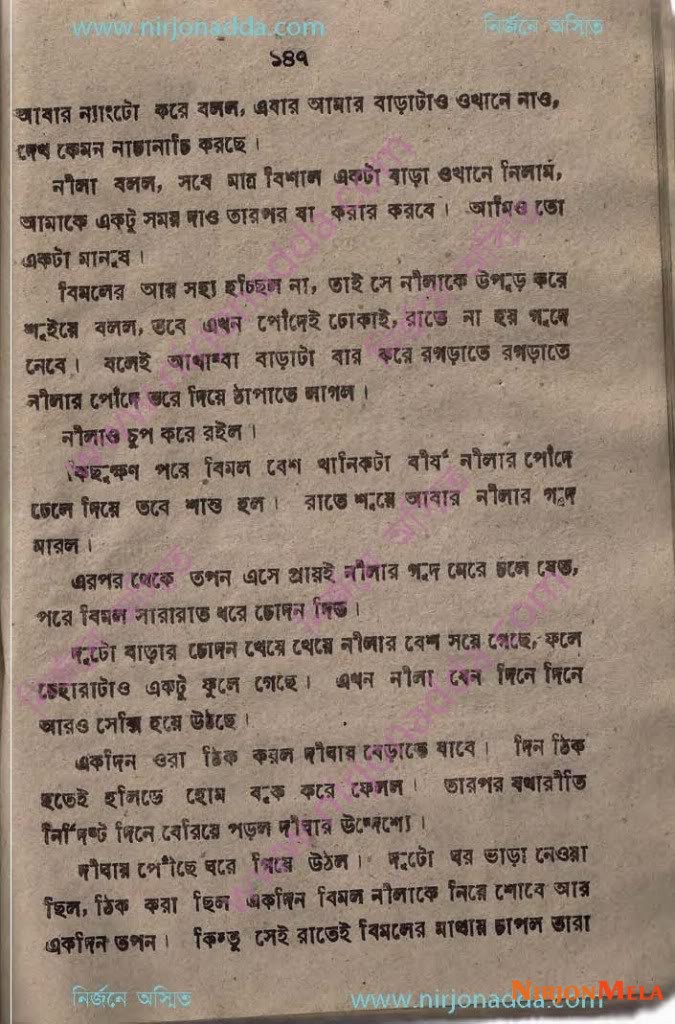 www.nirjonadda.com নির্জনে অস্মিত
১৪৭
আবার ন্যাংটো করে বলল, এবার আমার বাড়াটাও ওখানে নাও,
দেখ কেমন নাচানাচি করছে।
নীলা বলল, সবে মাত্র বিশাল একটা বাড়া ওখানে নিলাম,
আমাকে একটু সময় দাও তারপর যা করার করবে। আমিও তো
একটা মানুষ।
বিমলের আর সহ্য হচ্ছিল না, তাই সে নীলাকে উপুড় করে
শুইয়ে বলল, তবে এখন পোঁদেই ঢোকাই, রাতে না হয় গুদে
নেবে। বলেই আখাম্বা বাড়াটা বার করে রগড়াতে রগড়াতে
নীলার পোঁদে ভরে দিয়ে ঠাপাতে লাগল।
নীলাও চুপ করে রইল।
কিছুক্ষণ পরে বিমল বেশ খানিকটা বীর্য নীলার পোঁদে
ঢেলে দিয়ে তবে শান্ত হল। রাতে শুয়ে আবার নীলার গুদ
মারল।
এরপর থেকে তপন এসে প্রায়ই নীলার গুদ মেরে চলে যেত,
পরে বিমল সারারাত ধরে চোদন দিত।
দুটো বাড়ার চোদন খেয়ে খেয়ে নীলার বেশ সয়ে গেছে, ফলে
চেহারাটাও একটু ফুলে গেছে। এখন নীলা যেন দিনে দিনে
আরও সেক্সি হয়ে উঠছে।
একদিন ওরা ঠিক করল দীঘায় বেড়াতে যাবে। দিন ঠিক
হতেই হলিডে হোম বুক করে ফেলল। তারপর যথারীতি
নির্দিষ্ট দিনে বেরিয়ে পড়ল দীঘার উদ্দেশ্যে।
দীঘায় পৌঁছে ঘরে গিয়ে উঠল। দুটো ঘর ভাড়া নেওয়া
ছিল, ঠিক করা ছিল একদিন বিমল নীলাকে নিয়ে শোবে আর
একদিন তপন। কিন্তু সেই রাতেই বিমলের মাথায় চাপল তারা
নির্জনে অস্মিত www.nirjonadda.com
NIRJONMELA